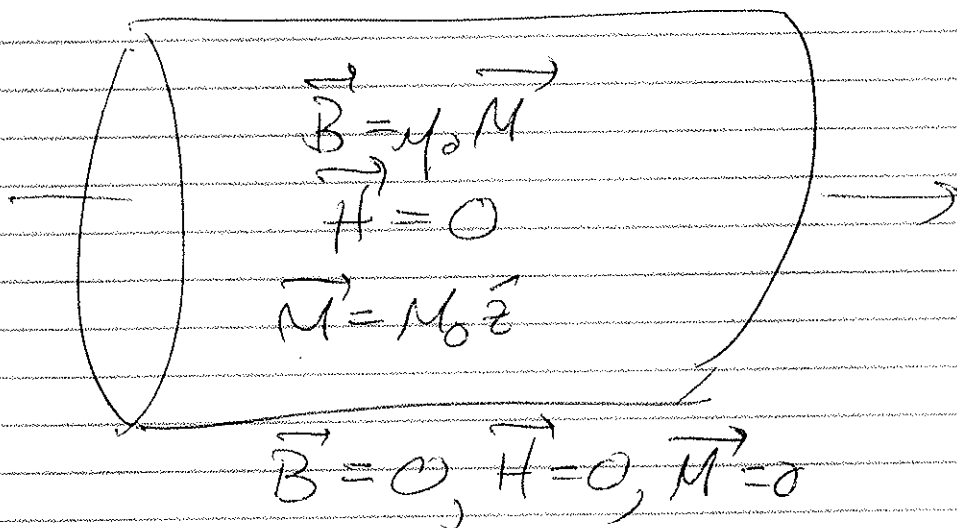 $\vec{B} = \mu_0 \vec{M}$
$\vec{H} = 0$
$\vec{M} = M_0 \hat{z}$
$\vec{B} = 0, \vec{H} = 0, \vec{M} = 0$